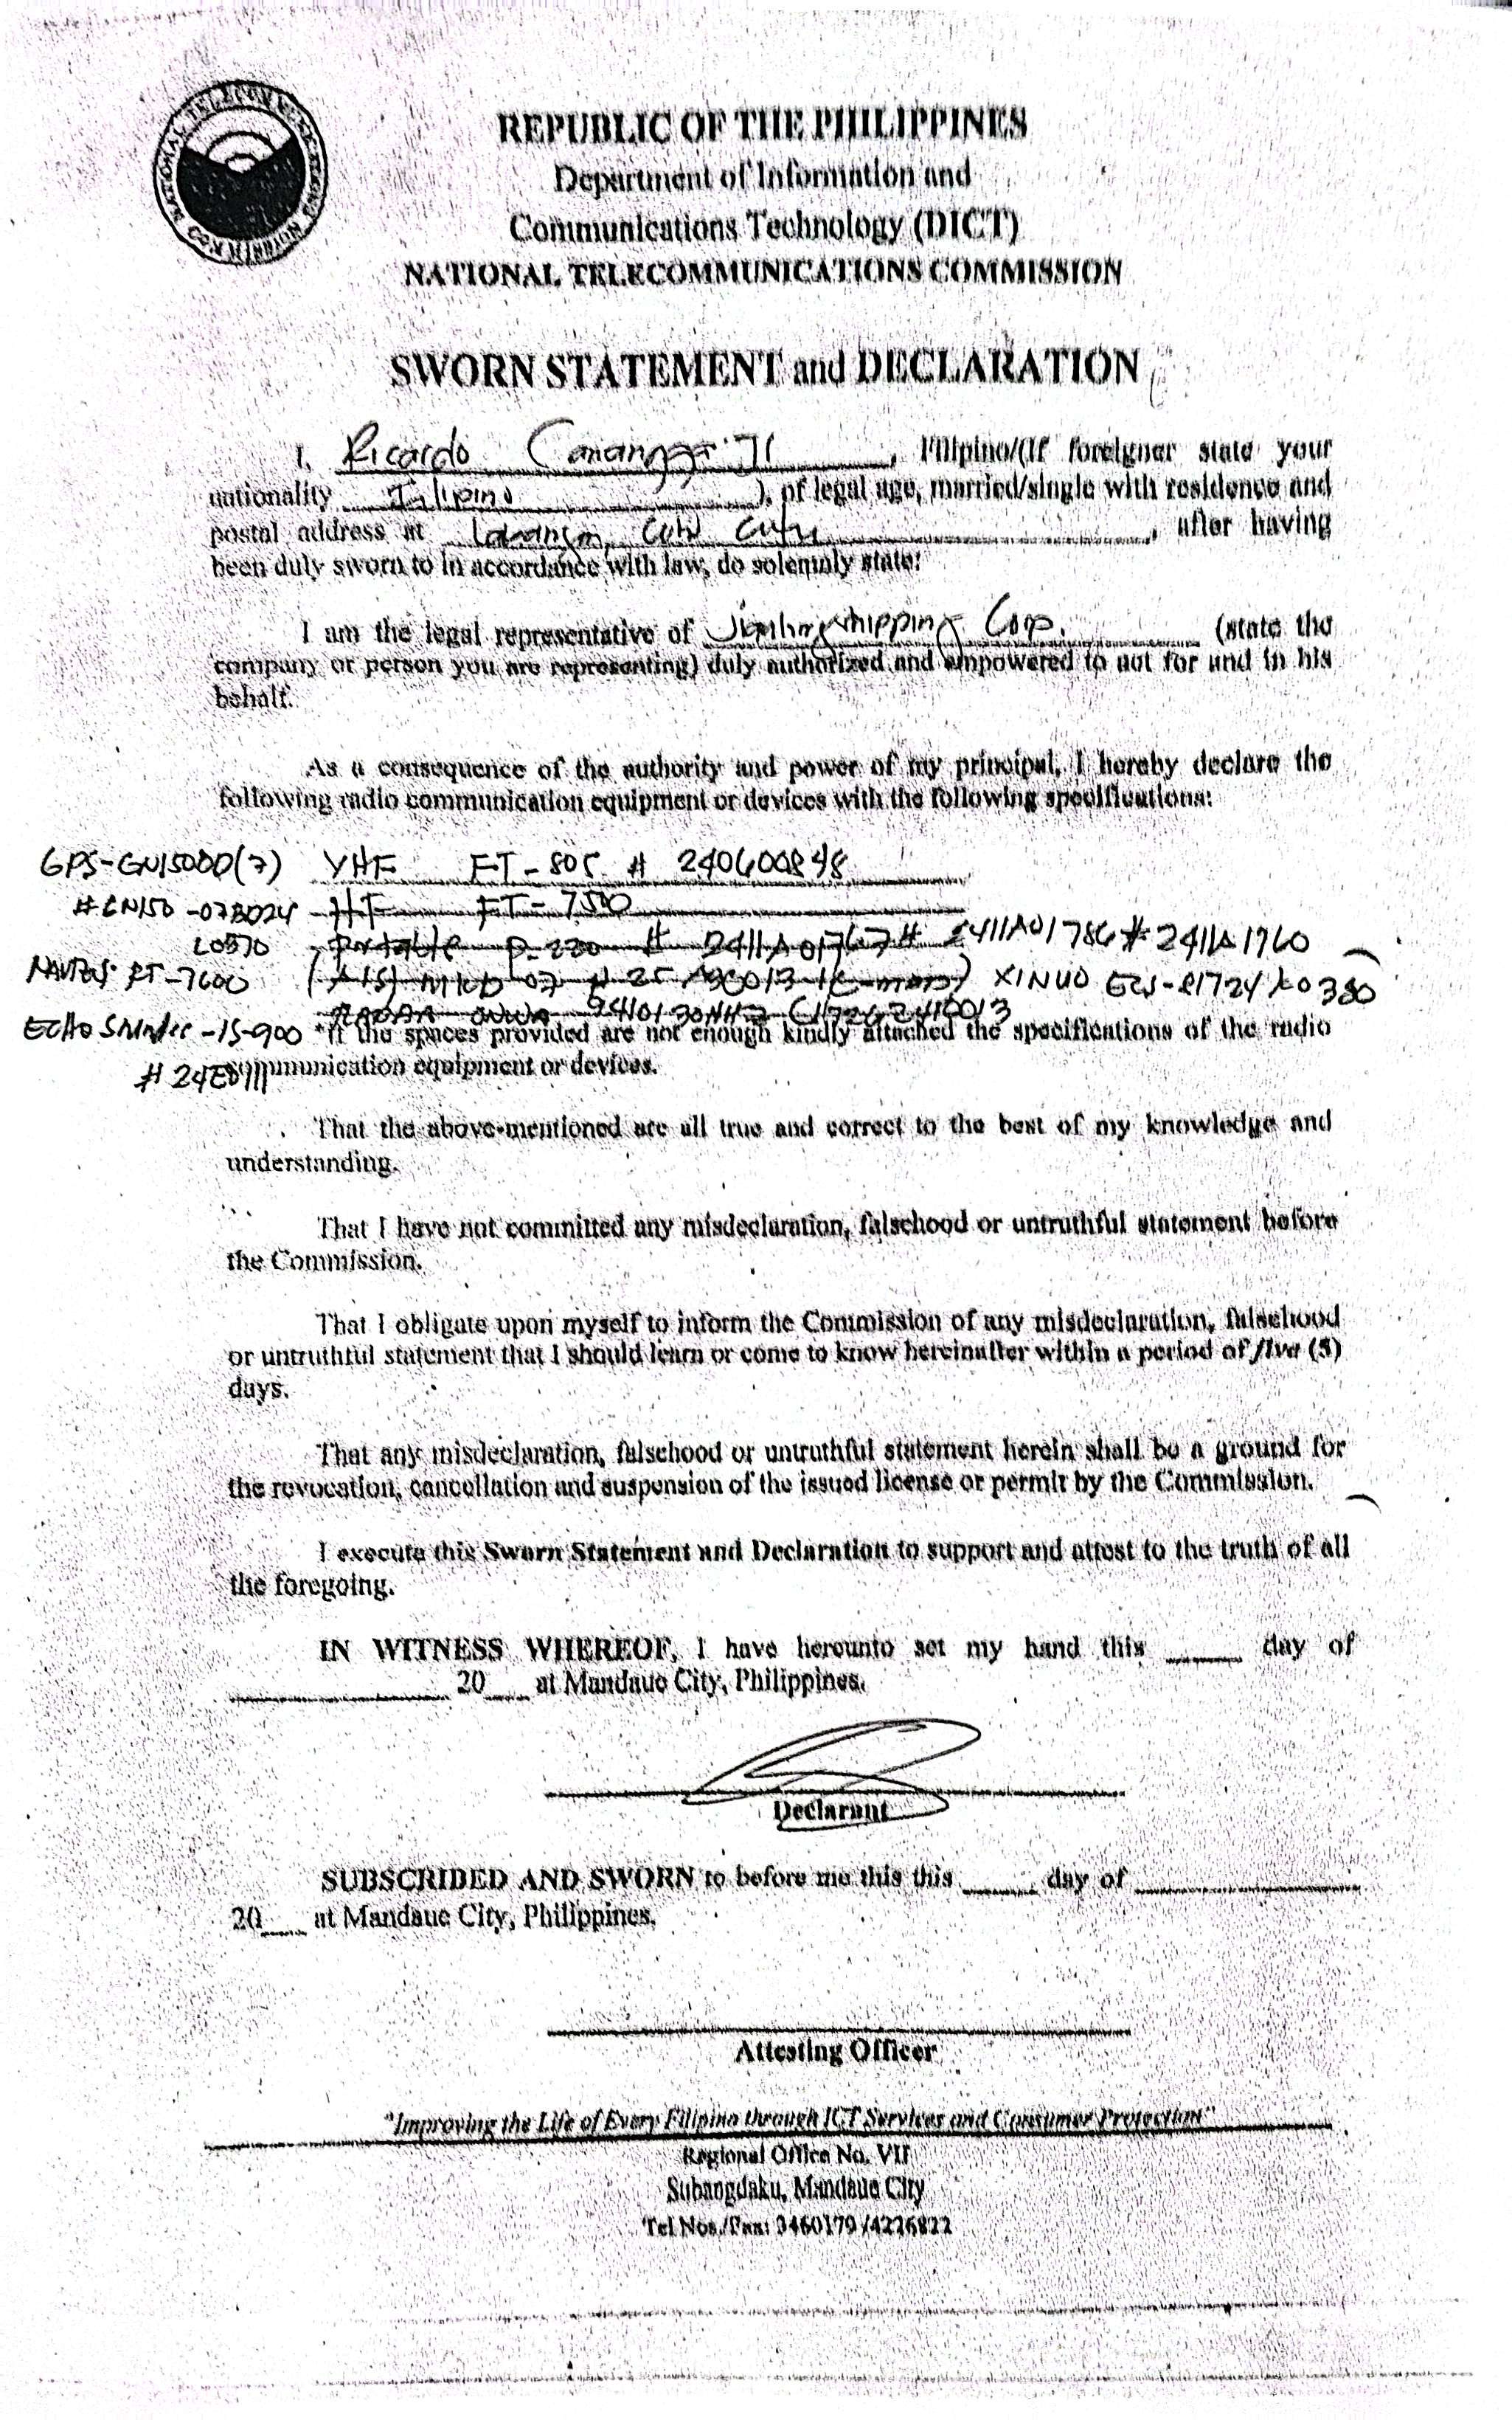 REPUBLIC OF THE PHILIPPINES
Department of Information and
Communications Technology (DICT)
NATIONAL TELECOMMUNICATIONS COMMISSION
SWORN STATEMENT and DECLARATION
I, Ricardo , Filipino/(if foreigner state your
nationality Filipino ), of legal age, married/single with residence and
postal address at , after having
been duly sworn to in accordance with law, do solemnly state:
I am the legal representative of shipping Corp. (state the
company or person you are representing) duly authorized and empowered to act for and in his
behalf.
As a consequence of the authority and power of my principal, I hereby declare the
following radio communication equipment or devices with the following specifications:
GPS-GN1500D(7) VHF FT-805 # 240600848
#GN150-078024 HF FT-7500
20570 Portable P-220 # 2411A01767# 2411A01786# 2411A1760
RT-7600 (AIS) XINUO
RADAR ONWA
Echo -IS-900 *If the spaces provided are not enough kindly attached the specifications of the radio
communication equipment or devices.
That the above-mentioned are all true and correct to the best of my knowledge and
understanding.
That I have not committed any misdeclaration, falsehood or untruthful statement before
the Commission.
That I obligate upon myself to inform the Commission of any misdeclaration, falsehood
or untruthful statement that I should learn or come to know hereinafter within a period of five (5)
days.
That any misdeclaration, falsehood or untruthful statement herein shall be a ground for
the revocation, cancellation and suspension of the issued license or permit by the Commission.
I execute this Sworn Statement and Declaration to support and attest to the truth of all
the foregoing.
IN WITNESS WHEREOF, I have hereunto set my hand this ____ day of
____ 20__ at Mandaue City, Philippines.
Declarant
SUBSCRIBED AND SWORN to before me this this ____ day of ____
20__ at Mandaue City, Philippines.
Attesting Officer
"Improving the Life of Every Filipino through ICT Services and Consumer Protection"
Regional Office No. VII
Subangdaku, Mandaue City
Tel Nos./Fax: 3460179 /4226822